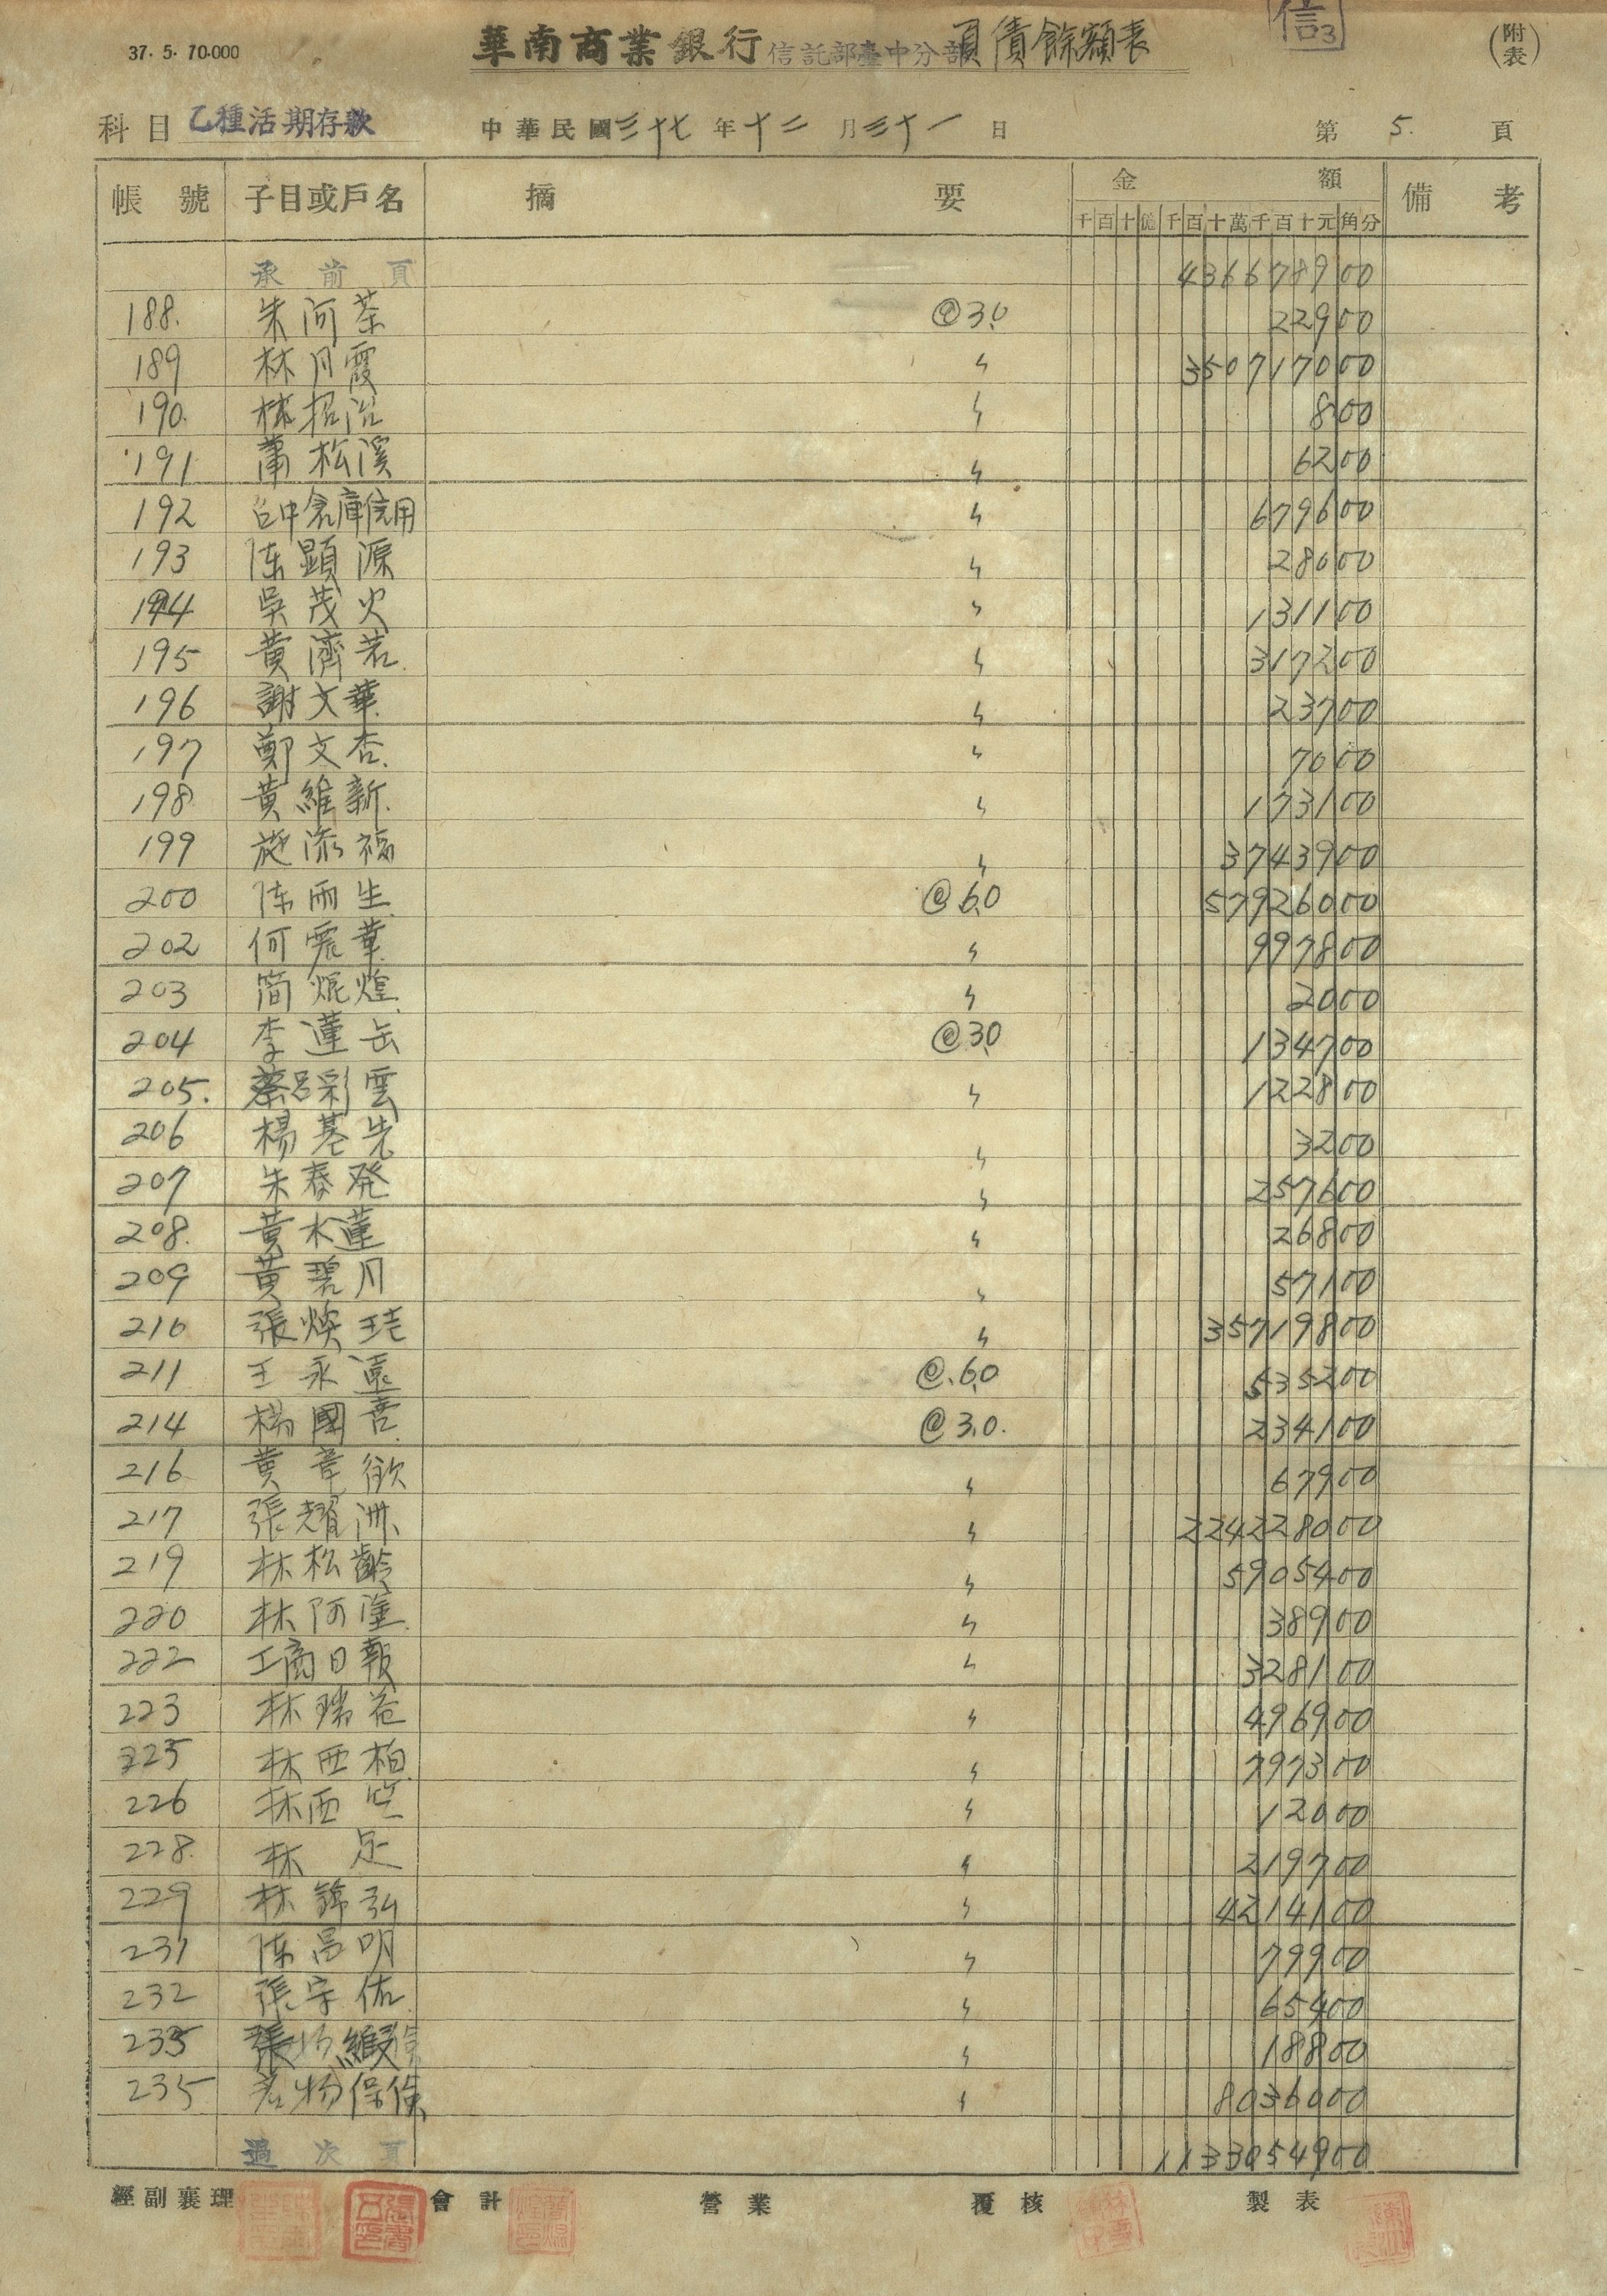 37. 5. 70.000
華南商業銀行信託部臺中分部負債餘額表
信3
(附表)
科目 乙種活期存款 中華民國三十七年十二月三十一日 第5.頁
帳號 子目或戶名 摘要 金額 備考
千百十億千百十萬千百十元角分
承前頁 436678900
188. 朱阿茶 @3.0 22900
189 林月霞 〃 350717000
190. 林招治 〃 800
191 蕭松溪 〃 6200
192 台中倉庫信用 〃 679600
193 陈顕源 〃 28000
194 吳茂火 〃 131100
195 黃濟若 〃 317200
196 謝文華 〃 23700
197 鄭文杏 〃 7000
198 黃維新 〃 173100
199 施添福 〃 3743900
200 陈雨生 @6.0 57926000
202 何震華 〃 997800
203 簡焜煌 〃 2000
204 李蓮缶 @3.0 134700
205. 蔡呂彩雲 〃 122800
206 楊基先 〃 3200
207 朱春発 〃 257600
208. 黃水蓮 〃 26800
209 黃碧月 〃 57100
210 張煥珪 〃 35719800
211 王永遠 @.6.0 535200
214 楊國喜 @3.0. 234100
216 黃章欲 〃 67900
217 張耀洲 〃 224228000
219 林松齡 〃 5905400
220 林阿隆 〃 38900
222 工商日報 〃 328100
223 林瑞苍 〃 496900
225 林西柏 〃 797300
226 林西 〃 12000
228. 林足 〃 219700
229 林錦弘 〃 4214100
231 陈昌明 〃 79900
232 張宗佑 〃 65400
233 張 〃 18800
235 產物保險 〃 8036000
過次頁 1133054900
經副襄理 會計 營業 覆核 製表